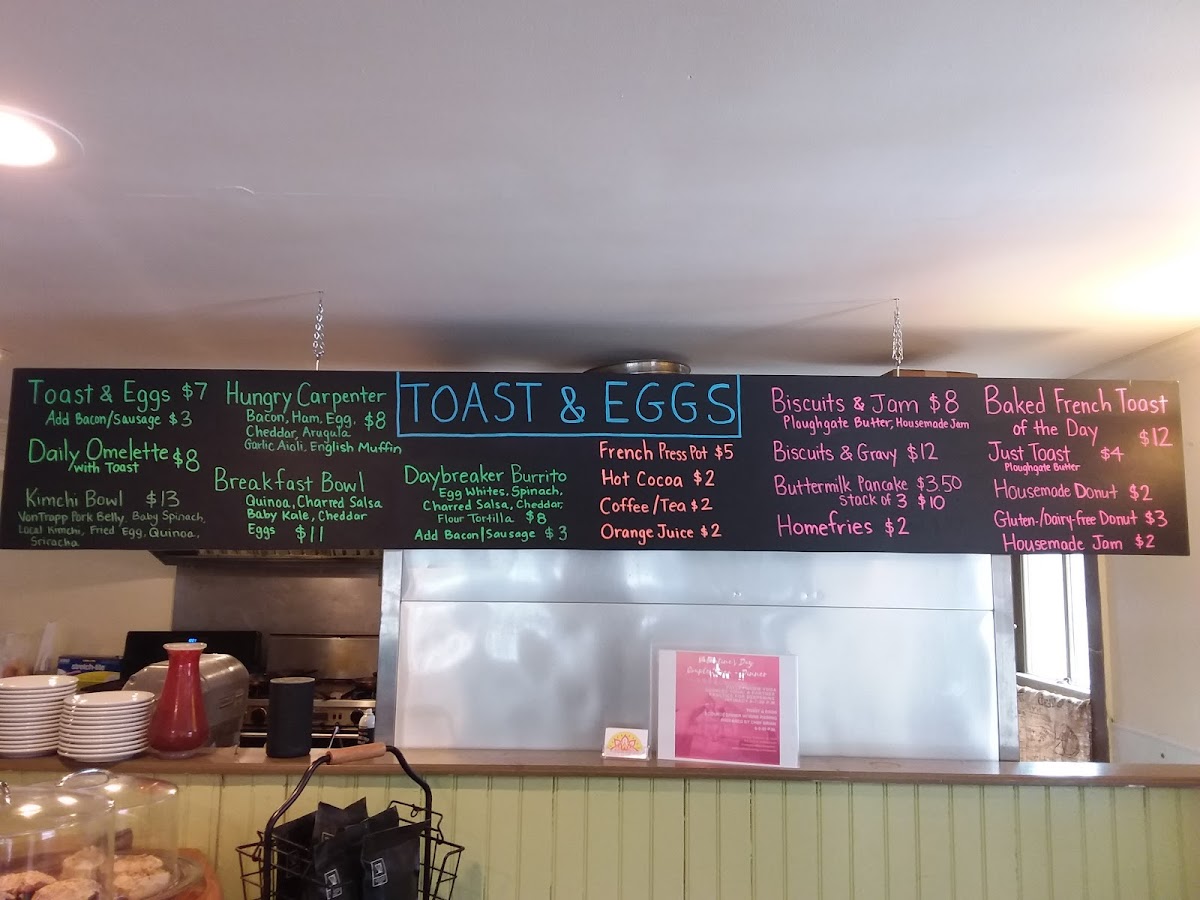 Toast & Eggs $7
Add Bacon/Sausage $3
Daily Omelette $8
with Toast
Kimchi Bowl $13
VonTrapp Pork Belly, Baby Spinach,
Local Kimchi, Fried Egg, Quinoa,
Sriracha
Hungry Carpenter
Bacon, Ham, Egg, $8
Cheddar, Arugula
Garlic Aioli, English Muffin
Breakfast Bowl
Quinoa, Charred Salsa
Baby Kale, Cheddar
Eggs $11
TOAST & EGGS
Daybreaker Burrito
Egg Whites, Spinach,
Charred Salsa, Cheddar,
Flour Tortilla $8
Add Bacon/Sausage $3
French Press Pot $5
Hot Cocoa $2
Coffee/Tea $2
Orange Juice $2
Biscuits & Jam $8
Ploughgate Butter, Housemade Jam
Biscuits & Gravy $12
Buttermilk Pancake $3.50
Stack of 3 $10
Homefries $2
Baked French Toast
of the Day $12
Just Toast $4
Ploughgate Butter
Housemade Donut $2
Gluten-/Dairy-free Donut $3
Housemade Jam $2
stretch-tite
Day
Dinner